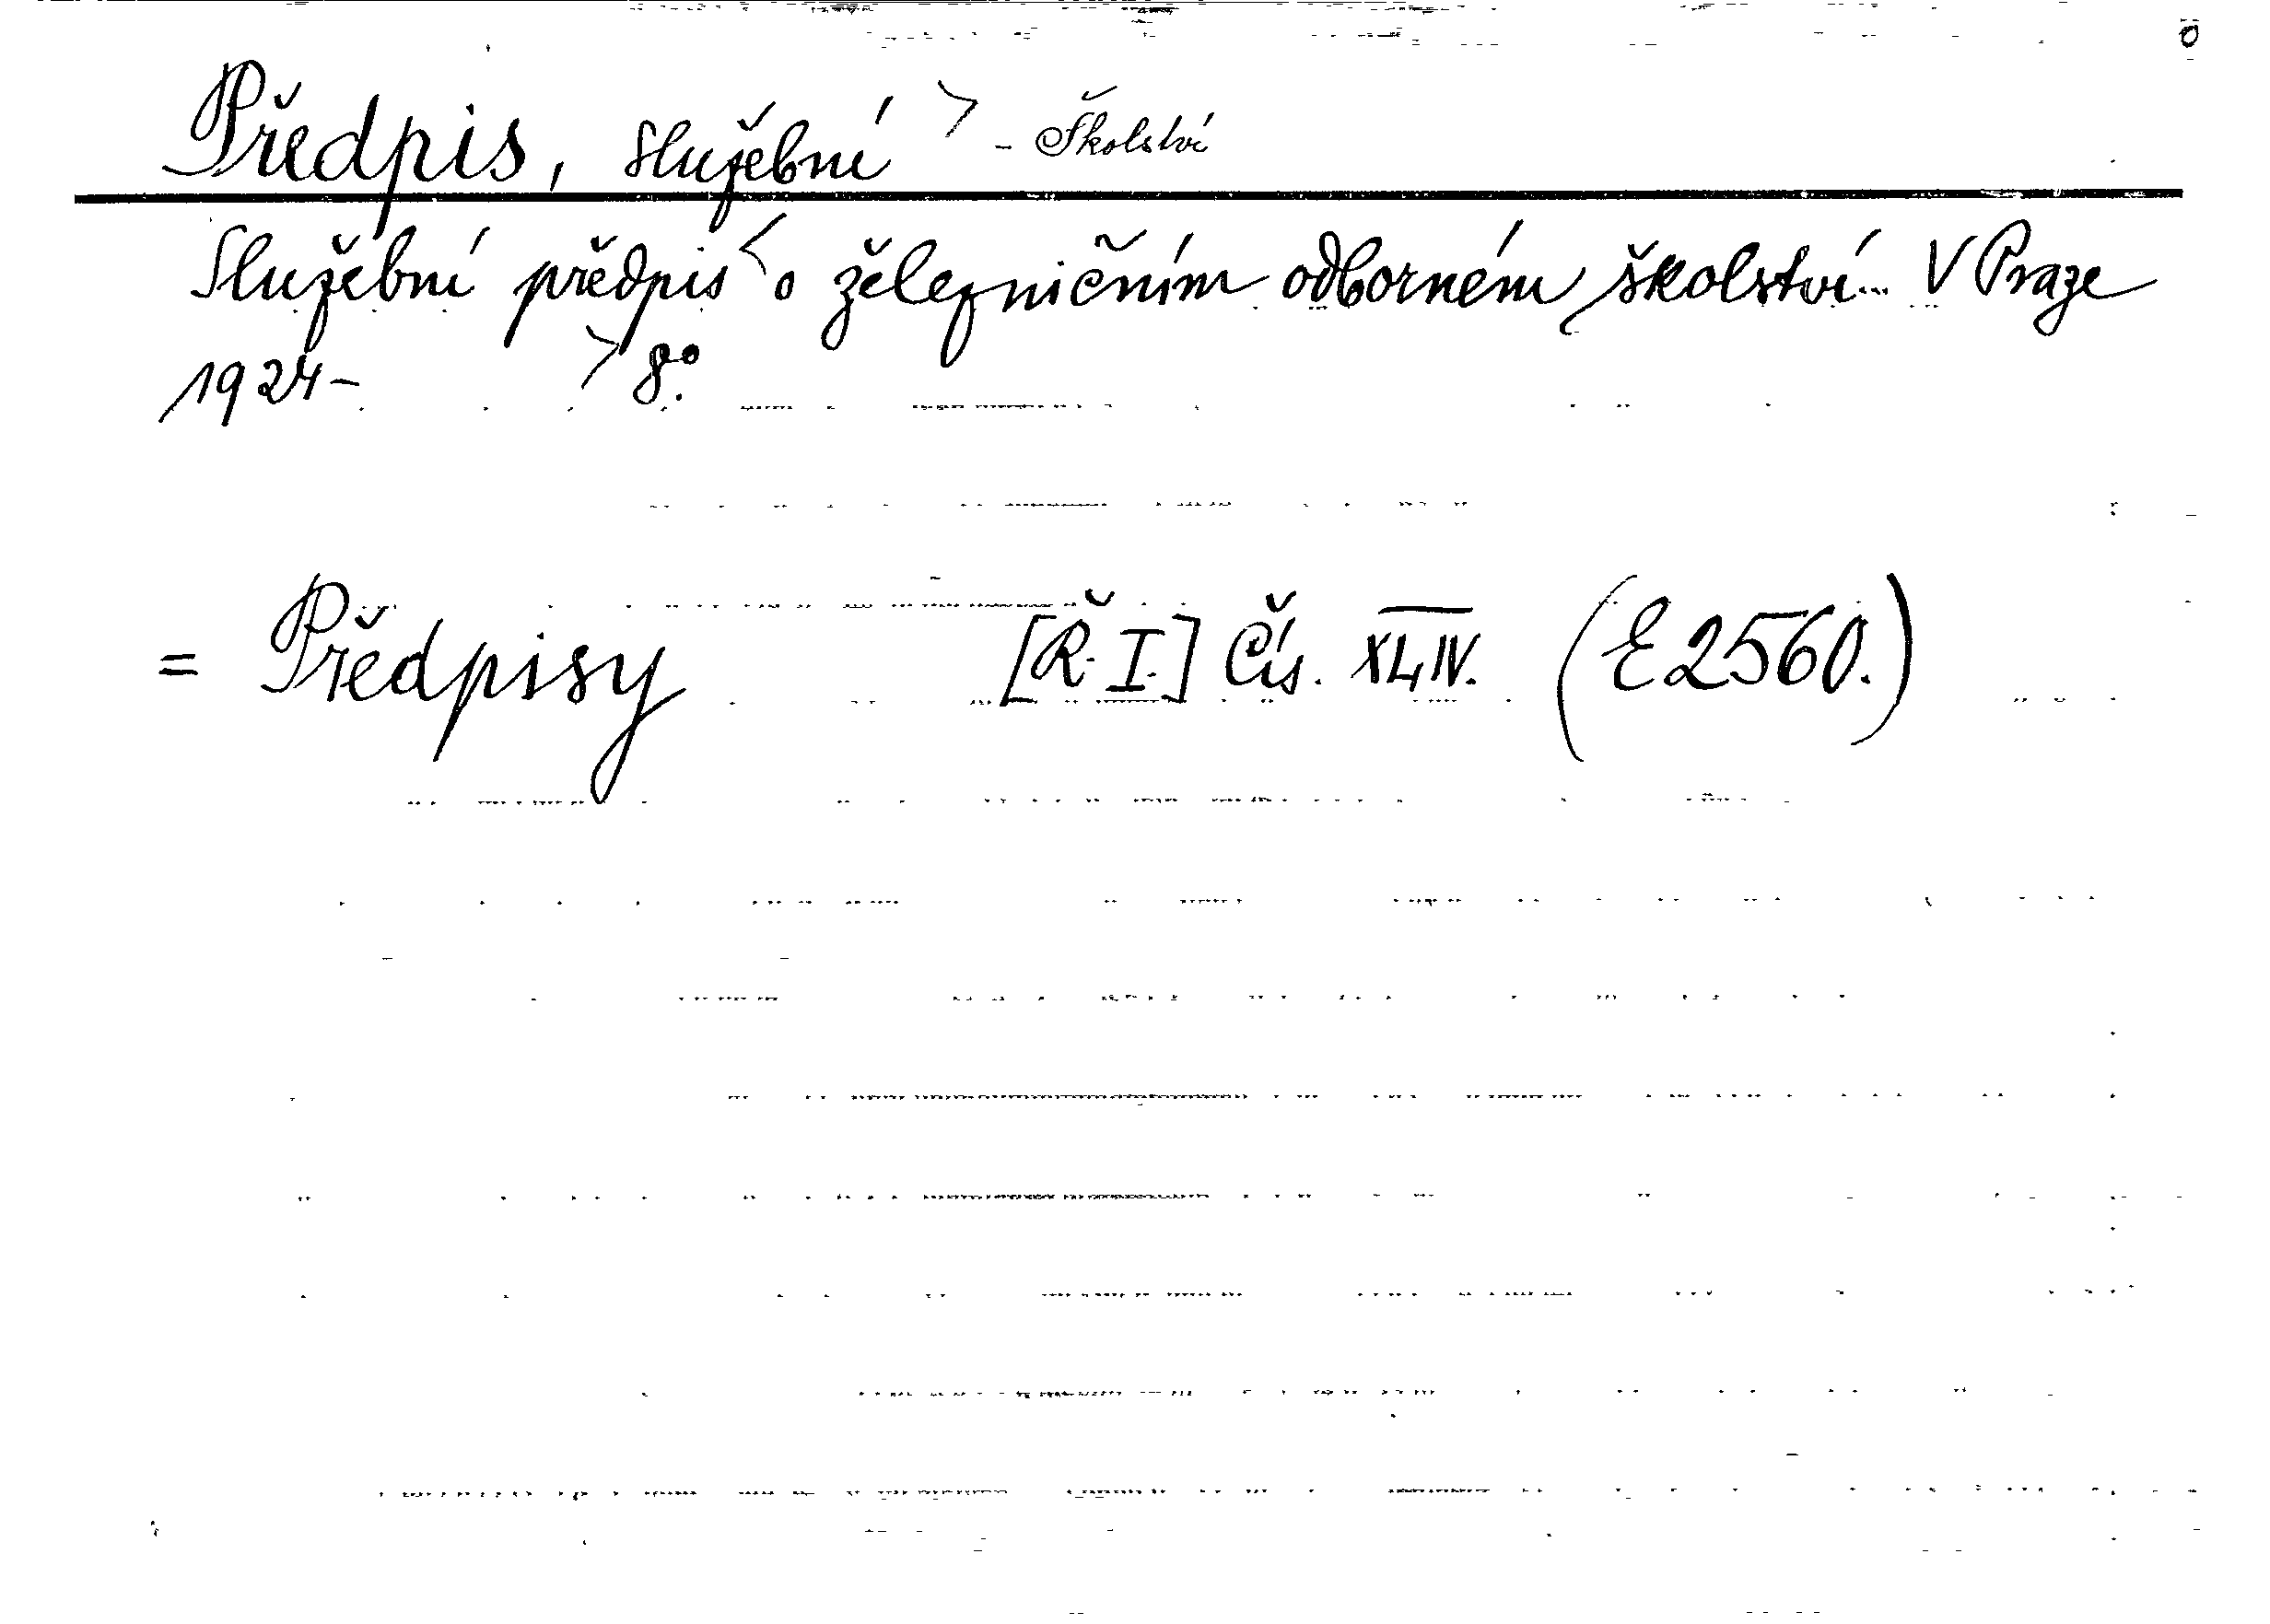 o
Předpis, služební > - Školství
Služební předpis < o želežničním odborném školství... V Praze
1924- > 8°.
= Předpisy [Ř. I.] Čís. XLIV. (E 2560.)